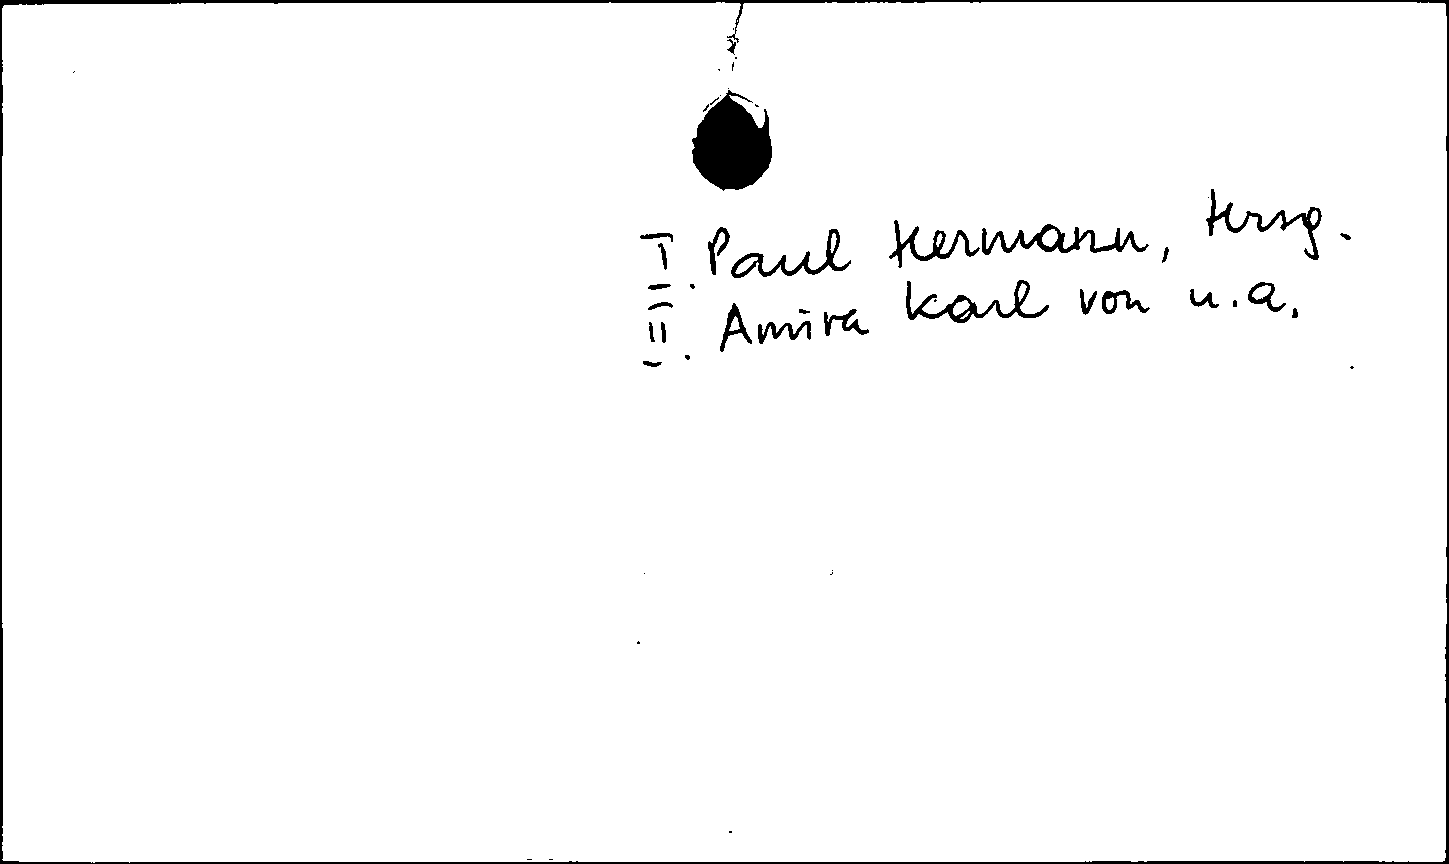 I. Paul Hermann, Hrsg.
II. Amira Karl von u.a.